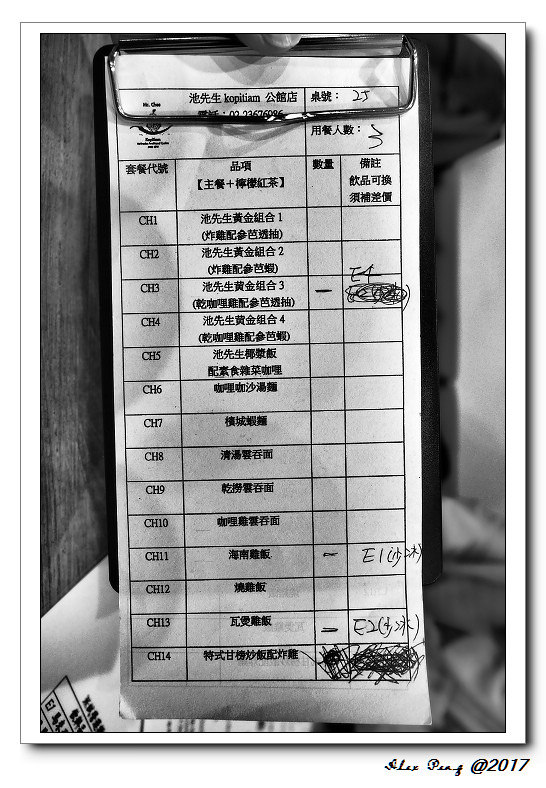 Mr. Chee
Kopitiam
池先生 kopitiam 公館店
桌號： 25
用餐人數： 3
套餐代號 品項 數量 備註
【主餐＋檸檬紅茶】 飲品可換
須補差價
CH1 池先生黃金組合 1
(炸雞配參芭透抽)
CH2 池先生黃金組合 2
(炸雞配參芭蝦)
E4
CH3 池先生黃金組合 3 一
(乾咖哩雞配參芭透抽)
CH4 池先生黃金組合 4
(乾咖哩雞配參芭蝦)
CH5 池先生椰漿飯
配素食雜菜咖哩
CH6 咖哩咖沙湯麵
CH7 檳城蝦麵
CH8 清湯雲吞面
CH9 乾撈雲吞面
CH10 咖哩雞雲吞面
CH11 海南雞飯 一 E1(少冰)
CH12 燒雞飯
CH13 瓦煲雞飯 一 E2(少冰)
CH14 特式甘榜炒飯配炸雞
Alex Peng @2017